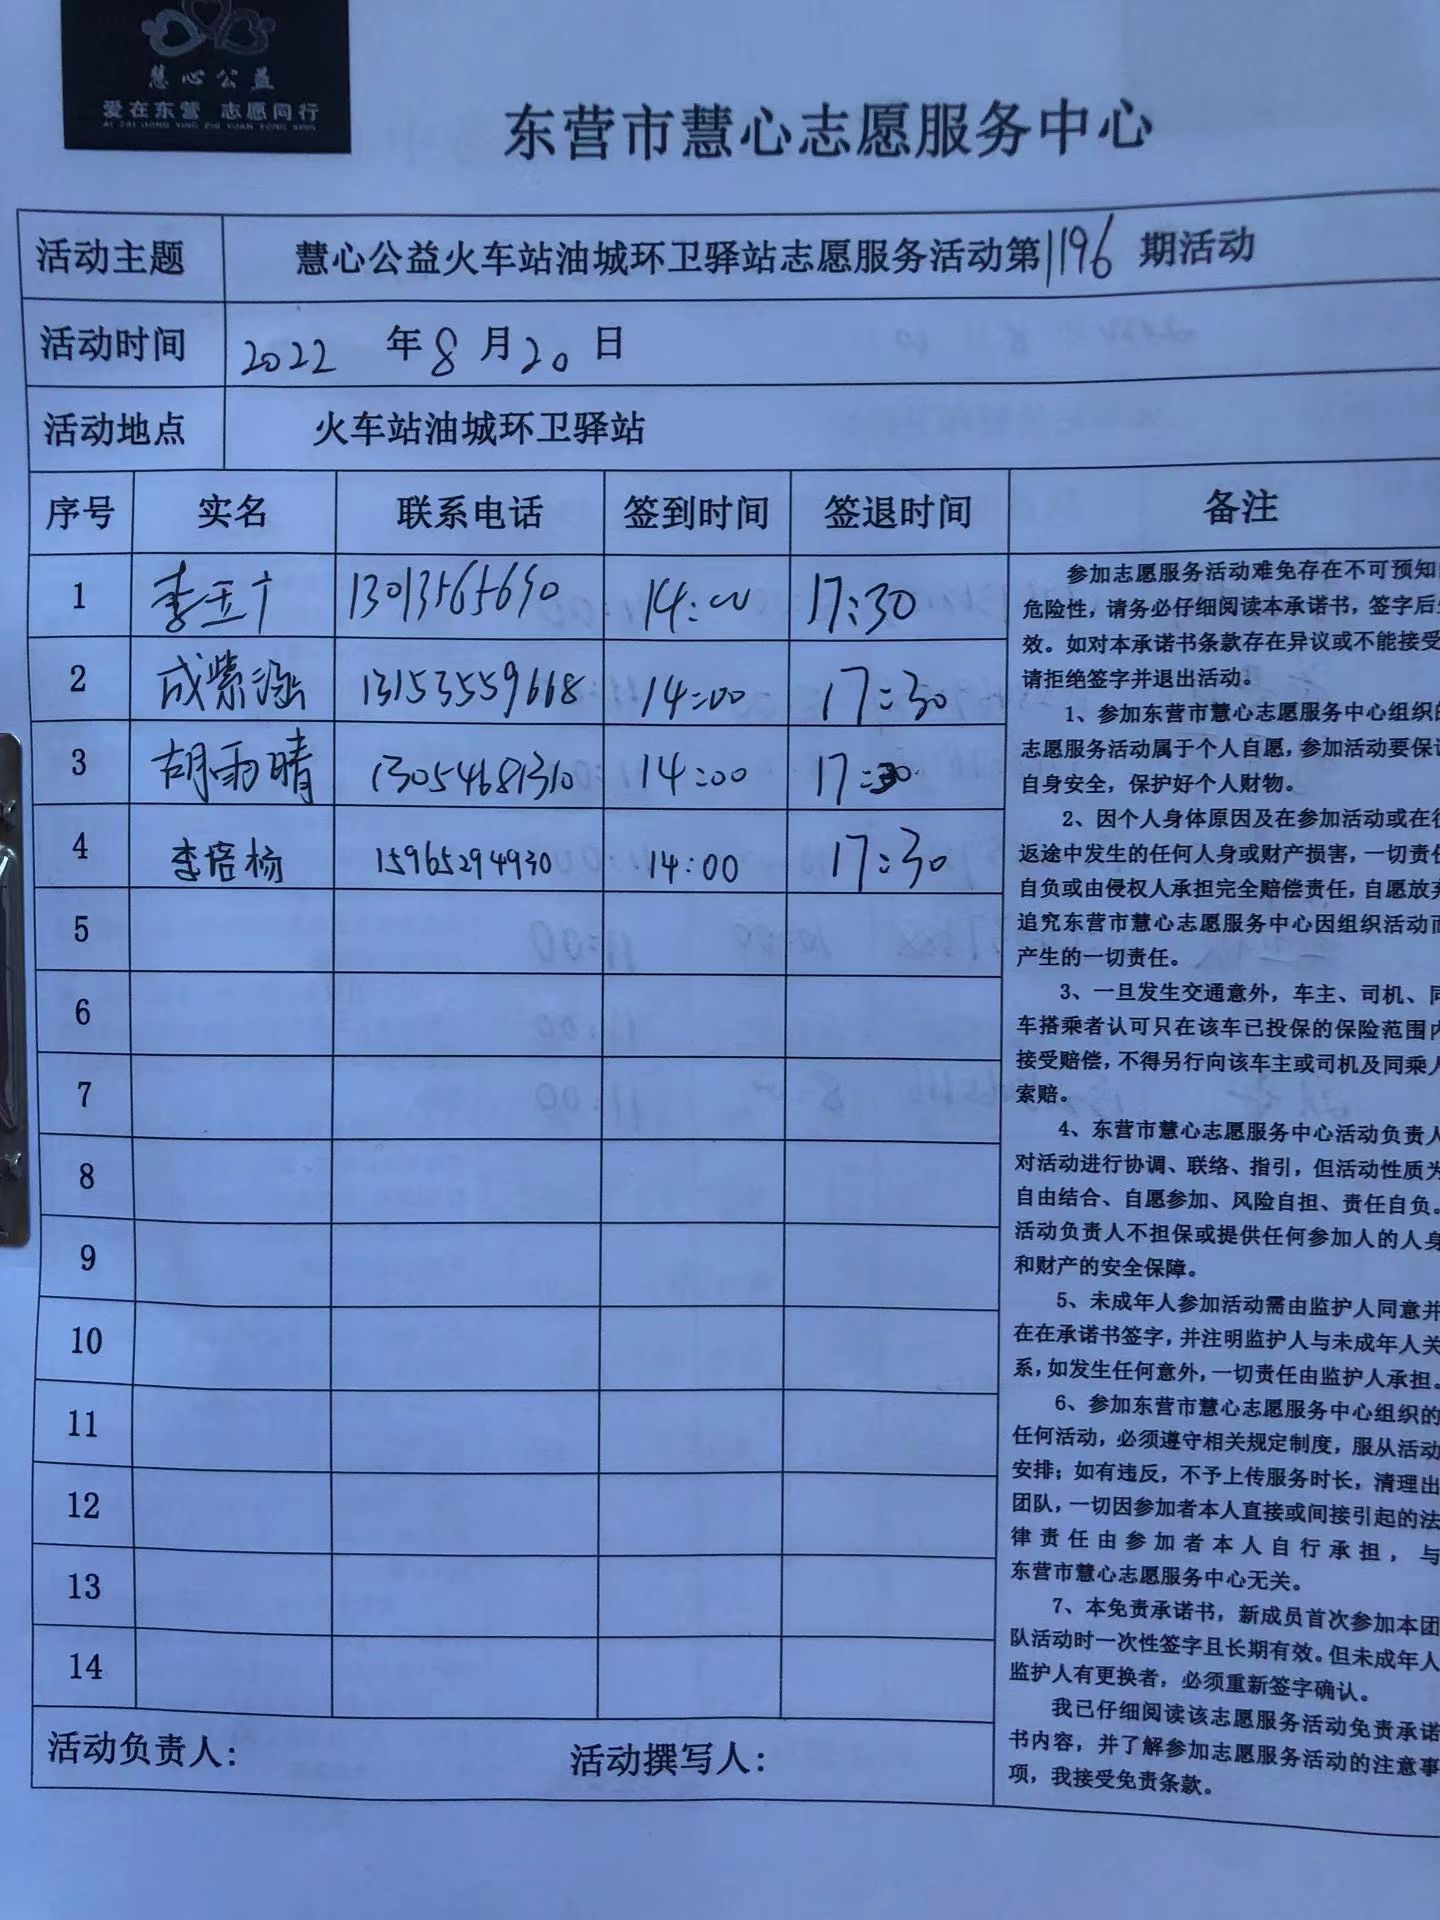 慧心公益
爱在东营 志愿同行
AI ZAI DONG YING ZHI YUAN TONG XING
东营市慧心志愿服务中心
活动主题 慧心公益火车站油城环卫驿站志愿服务活动第1196期活动
活动时间 2022 年 8 月 20 日
活动地点 火车站油城环卫驿站
序号 实名 联系电话 签到时间 签退时间 备注
1 李玉 14:00 17:30
2 成紫涵 13153559668 14:00 17:30
3 胡雨晴 13054681310 14:00 17:30
4 李培杨 15965294930 14:00 17:30
5
6
7
8
9
10
11
12
13
14
参加志愿服务活动难免存在不可预知
危险性，请务必仔细阅读本承诺书，签字后
效。如对本承诺书条款存在异议或不能接受
请拒绝签字并退出活动。
1、参加东营市慧心志愿服务中心组织的
志愿服务活动属于个人自愿，参加活动要保证
自身安全，保护好个人财物。
2、因个人身体原因及在参加活动或在往
返途中发生的任何人身或财产损害，一切责任
自负或由侵权人承担完全赔偿责任，自愿放弃
追究东营市慧心志愿服务中心因组织活动而
产生的一切责任。
3、一旦发生交通意外，车主、司机、同
车搭乘者认可只在该车已投保的保险范围内
接受赔偿，不得另行向该车主或司机及同乘人
索赔。
4、东营市慧心志愿服务中心活动负责人
对活动进行协调、联络、指引，但活动性质为
自由结合、自愿参加、风险自担、责任自负。
活动负责人不担保或提供任何参加人的人身
和财产的安全保障。
5、未成年人参加活动需由监护人同意并
在在承诺书签字，并注明监护人与未成年人关
系，如发生任何意外，一切责任由监护人承担。
6、参加东营市慧心志愿服务中心组织的
任何活动，必须遵守相关规定制度，服从活动
安排；如有违反，不予上传服务时长，清理出
团队，一切因参加者本人直接或间接引起的法
律责任由参加者本人自行承担，与
东营市慧心志愿服务中心无关。
7、本免责承诺书，新成员首次参加本团
队活动时一次性签字且长期有效。但未成年人
监护人有更换者，必须重新签字确认。
我已仔细阅读该志愿服务活动免责承诺
书内容，并了解参加志愿服务活动的注意事
项，我接受免责条款。
活动负责人： 活动撰写人：